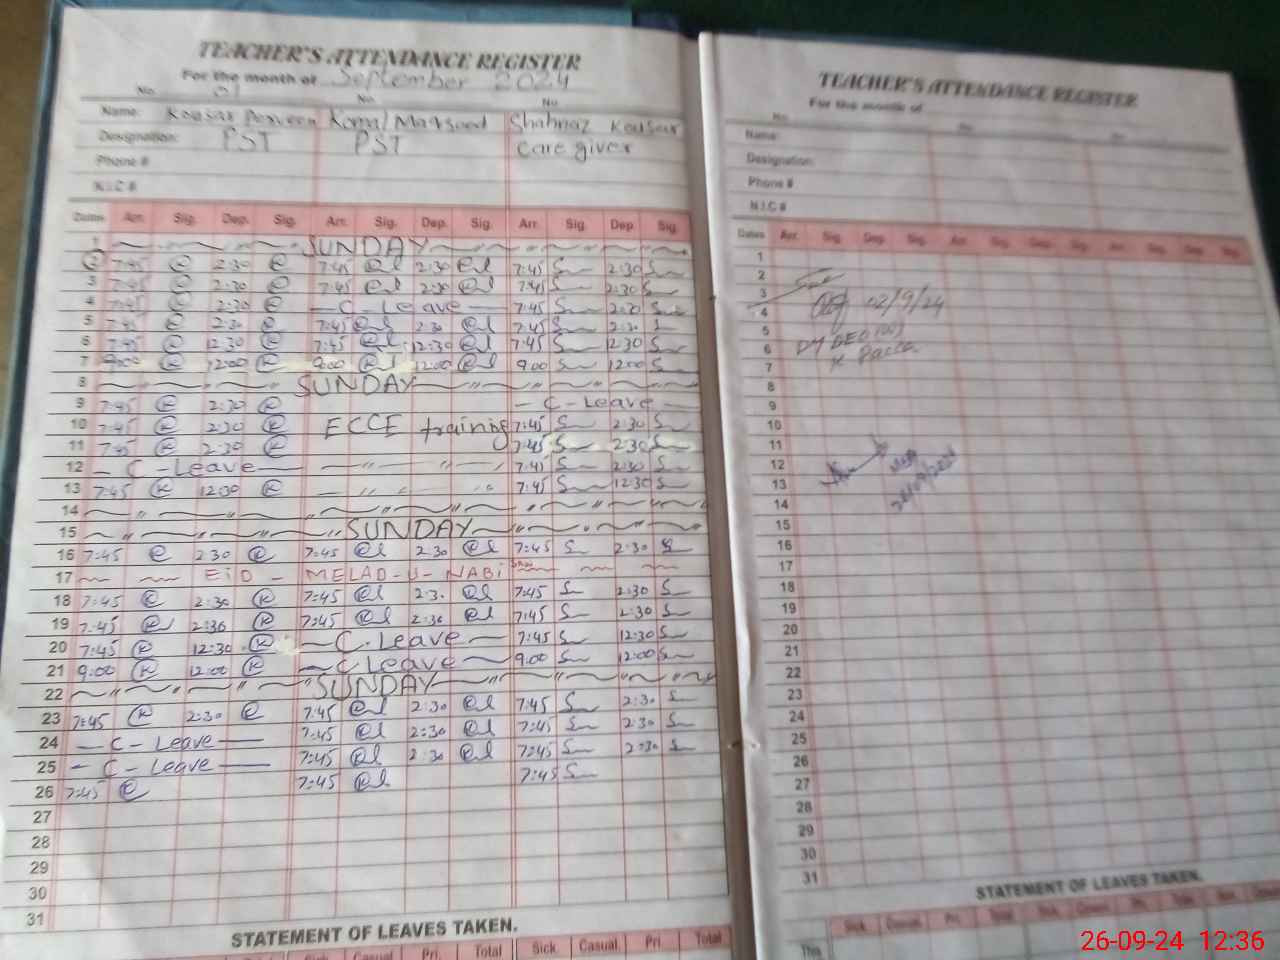 TEACHER'S ATTENDANCE REGISTER
For the month of September 2024
No. 01 No. No
Name: Kousar Perveen Komal Maqsood Shahnaz Kousar
Designation: PST PST Care giver
Phone #
N.I.C #
Dates Arr. Sig. Dep. Sig. Arr. Sig. Dep. Sig. Arr. Sig. Dep. Sig.
1 SUNDAY
2 7:45 2:30 7:45 2:30 7:45 2:30
3 7:45 2:30 7:45 2:30 7:45 2:30
4 7:45 2:30 - C - Leave - 7:45 2:30
5 7:45 2:30 7:45 2:30 7:45 2:30
6 7:45 12:30 7:45 12:30 7:45 12:30
7 9:00 12:00 9:00 12:00 9:00 12:00
8 SUNDAY
9 7:45 2:30 - C - Leave -
10 7:45 2:30 ECCE training 7:45 2:30
11 7:45 2:30 7:45 2:30
12 - C - Leave - 7:45 2:30
13 7:45 12:30 7:45 12:30
14
15 SUNDAY
16 7:45 2:30 7:45 2:30 7:45 2:30
17 EID - MELAD - U - NABI
18 7:45 2:30 7:45 2:30 7:45 2:30
19 7:45 2:30 7:45 2:30 7:45 2:30
20 7:45 12:30 - C - Leave - 7:45 12:30
21 9:00 12:00 - C Leave - 9:00 12:00
22 SUNDAY
23 7:45 2:30 7:45 2:30 7:45 2:30
24 - C - Leave - 7:45 2:30 7:45 2:30
25 - C - Leave - 7:45 2:30 7:45 2:30
26 7:45 7:45 7:45
27
28
29
30
31
STATEMENT OF LEAVES TAKEN.
Sick Casual Pri. Total Sick Casual Pri. Total
TEACHER'S ATTENDANCE REGISTER
For the month of
No.
Name:
Designation:
Phone #
N.I.C #
Dates Arr. Sig. Dep. Sig. Arr. Sig. Dep. Sig. Arr. Sig. Dep. Sig.
1
2
3
4 02/9/24
5
6
7
8
9
10
11
12
13
14
15
16
17
18
19
20
21
22
23
24
25
26
27
28
29
30
31
STATEMENT OF LEAVES TAKEN.
Sick Casual Pri. Total Sick Casual Pri. Total
This
26-09-24 12:36